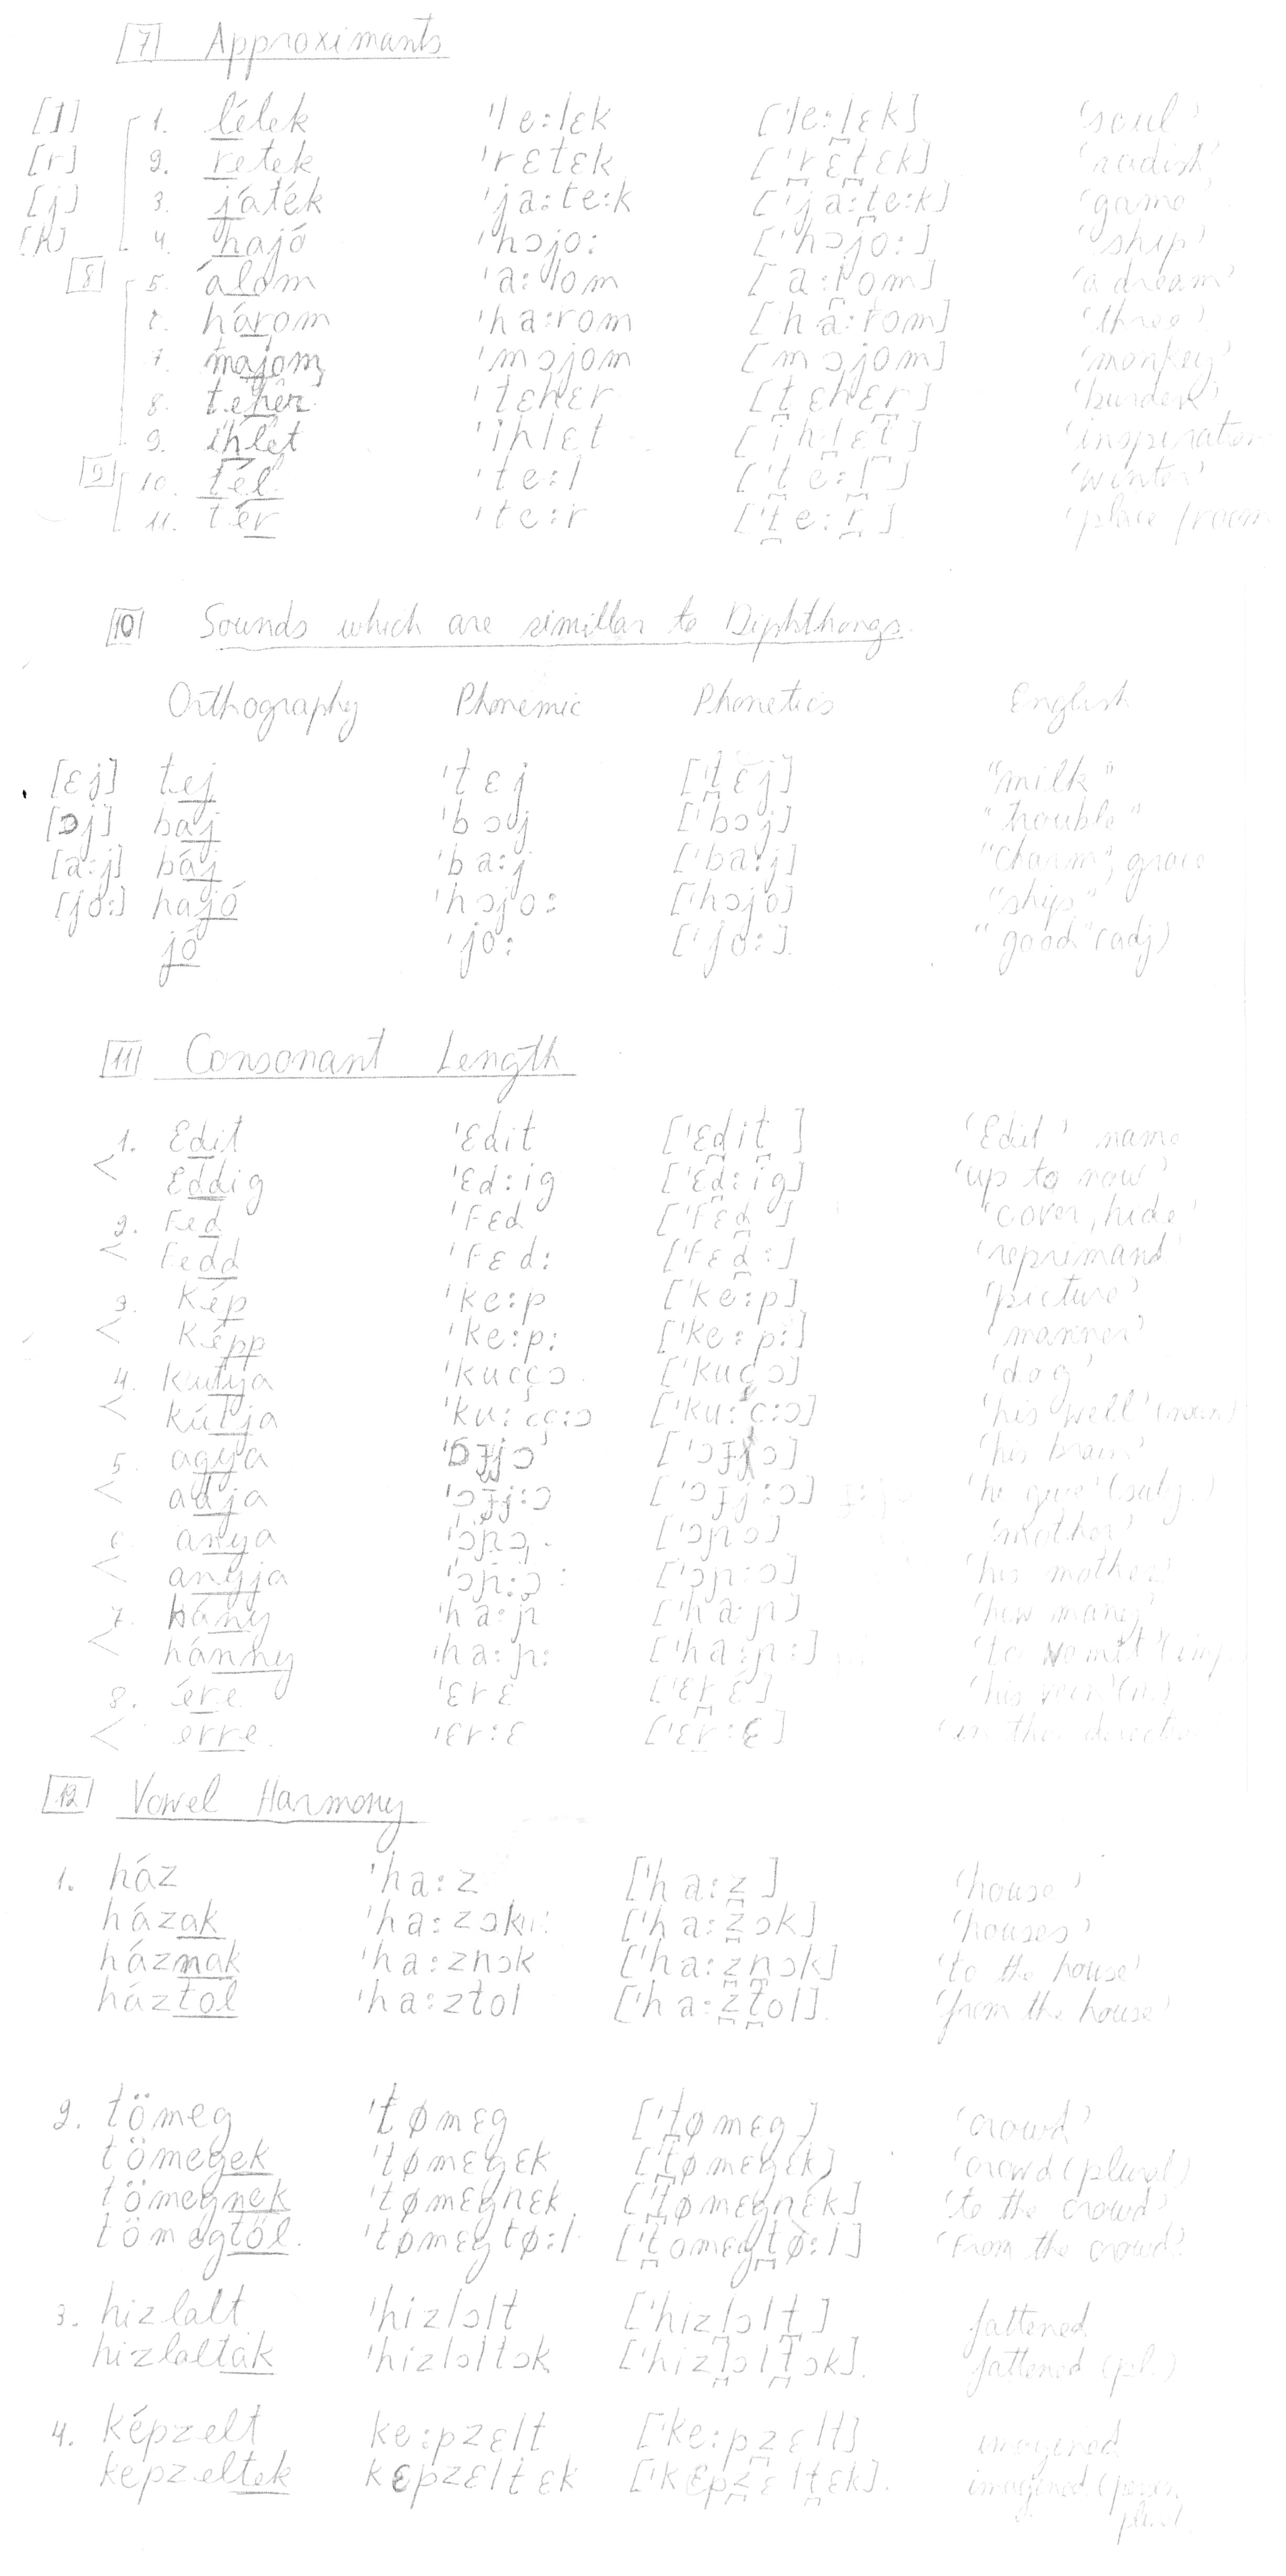 [7] Approximants
[l] 1. lélek 'le:lɛk ['le:l̪ɛk] 'soul'
[r] 2. retek 'rɛtɛk ['r̪ɛt̪ɛk] 'radish'
[j] 3. játék 'ja:te:k ['ja:t̪e:k] 'game'
[h] 4. hajó 'hɔjo: ['hɔjo:] 'ship'
[8] 5. álom 'a:lom [a:l̪om] 'a dream'
három 'ha:rom [ha:rom] 'three'
7. majom 'mɔjom [mɔjom] 'monkey'
8. teher 'tɛhɛr [t̪ɛhɛr̪] 'burden'
9. ihlet 'ihlɛt [ihl̪ɛt̪] 'inspiration
[9] 10. tél 'te:l ['t̪e:l̪] 'winter'
11. tér 'te:r ['t̪e:r̪] 'place /room
[10] Sounds which are simillar to Diphthongs.
Orthography Phonemic Phonetics English
[ɛj] tej 'tɛj ['t̪ɛj] "milk"
[ɔj] baj 'bɔj ['bɔj] "trouble"
[a:j] báj 'ba:j ['ba:j] "charm", grace
[jo:] hajó 'hɔjo: ['hɔjo] "ship"
jó 'jo: ['jo:] "good" (adj)
[11] Consonant Length
1. Edit 'ɛdit ['ɛd̪it̪] 'Edit' name
< Eddig 'ɛd:ig ['ɛd̪:ig] 'up to now'
2. Fed 'fɛd ['fɛd̪] 'cover, hide'
< Fedd 'fɛd: ['fɛd̪:] 'reprimand'
3. Kép 'ke:p ['ke:p] 'picture'
< Képp 'ke:p: ['ke:p:] 'manner'
4. kutya 'kucçɔ ['kuçɔ] 'dog'
< kútja 'ku:cç:ɔ ['ku:c:ɔ] 'his well' (noun)
5. agya 'ɔɟjɔ ['ɔɟɔ] 'his brain'
< adja 'ɔɟj:ɔ ['ɔɟj:ɔ] 'he give' (subj.)
6. anya 'ɔɲɔ ['ɔɲɔ] 'mother'
< anyja 'ɔɲ:ɔ ['ɔɲ:ɔ] 'his mother'
7. hány 'ha:ɲ ['ha:ɲ] 'how many'
< hánny 'ha:ɲ: ['ha:ɲ:] 'to vomit' (imp.
8. ére 'ɛrɛ ['ɛr̪ɛ] 'his vein' (n.)
< erre 'ɛr:ɛ ['ɛr:ɛ] 'in this direction
[12] Vowel Harmony
1. ház 'ha:z ['ha:z̪] 'house'
házak 'ha:zɔk ['ha:z̪ɔk] 'houses'
háznak 'ha:znɔk ['ha:z̪n̪ɔk] 'to the house'
háztol 'ha:ztol ['ha:z̪t̪ol]. 'from the house'
2. tömeg 'tømɛg ['t̪ømɛg] 'crowd'
tömegek 'tømɛgɛk ['t̪ømɛgɛk] 'crowd (plural)
tömegnek 'tømɛgnɛk ['t̪ømɛgnɛk] 'to the crowd'
tömegtöl. 'tømɛgtø:l ['t̪omɛgt̪ø:l] 'From the crowd'
3. hizlalt 'hizlɔlt ['hizl̪ɔlt̪] fattened
hizlaltak 'hizlɔltɔk ['hizl̪ɔlt̪ɔk]. fattened (pl.)
4. képzelt ke:pzɛlt ['ke:pz̪ɛlt] imagened
kepzeltek kɛpzɛltɛk ['kɛpz̪ɛlt̪ɛk]. imagined